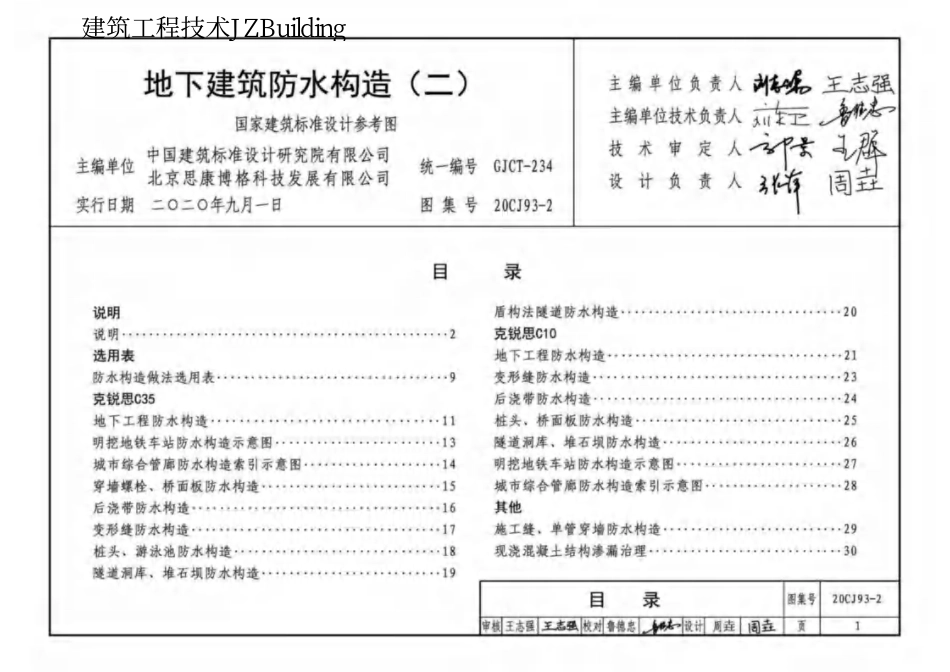 建筑工程技术JZBuilding
地下建筑防水构造（二）
国家建筑标准设计参考图
主编单位 中国建筑标准设计研究院有限公司
北京思康博格科技发展有限公司
统一编号 GJCT-234
实行日期 二〇二〇年九月一日
图集号 20CJ93-2
主编单位负责人 王志强
主编单位技术负责人 鲁德忠
技术审定人 王群
设计负责人 周垚
目 录
说明
说明··················2
选用表
防水构造做法选用表··················9
克锐思C35
地下工程防水构造··················11
明挖地铁车站防水构造示意图··················13
城市综合管廊防水构造索引示意图··················14
穿墙螺栓、桥面板防水构造··················15
后浇带防水构造··················16
变形缝防水构造··················17
桩头、游泳池防水构造··················18
隧道洞库、堆石坝防水构造··················19
盾构法隧道防水构造··················20
克锐思C10
地下工程防水构造··················21
变形缝防水构造··················23
后浇带防水构造··················24
桩头、桥面板防水构造··················25
隧道洞库、堆石坝防水构造··················26
明挖地铁车站防水构造示意图··················27
城市综合管廊防水构造索引示意图··················28
其他
施工缝、单管穿墙防水构造··················29
现浇混凝土结构渗漏治理··················30
目 录 图集号 20CJ93-2
审核 王志强 王志强 校对 鲁德忠 鲁德忠 设计 周垚 周垚 页 1